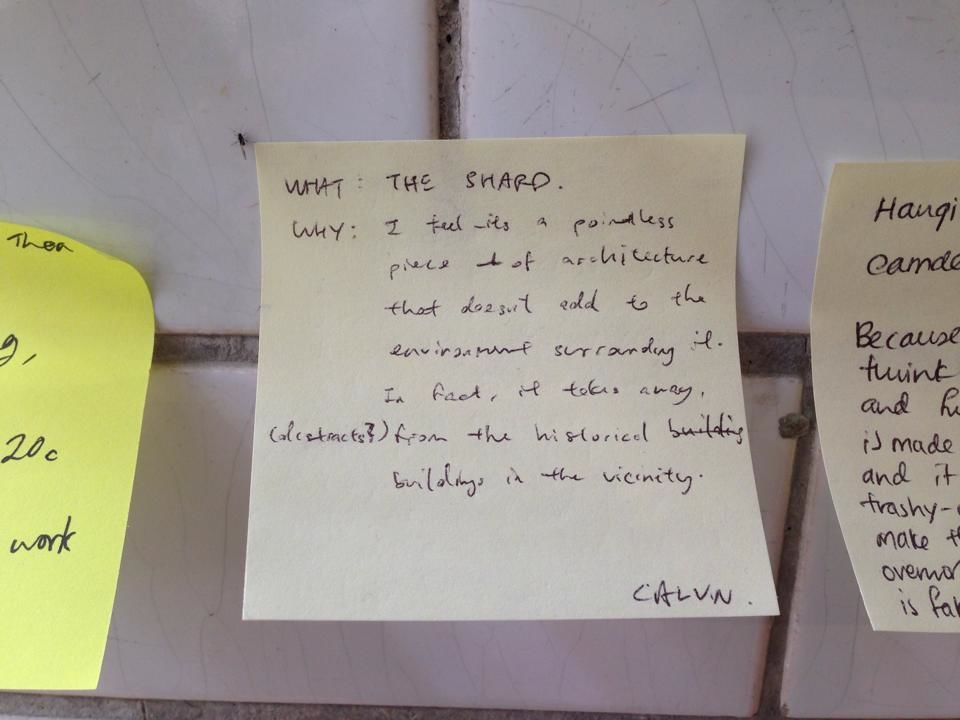 Thea
g,
20c
work
WHAT: THE SHARD.
WHY: I feel its a pointless
piece of architecture
that doesn't add to the
environment surrounding it.
In fact, it takes away,
(distracts?) from the historical building
buildings in the vicinity.
CALVIN.
Hangi
Camde
Because
twint
and hu
is made
and it
trashy-
make th
overmor
is fak